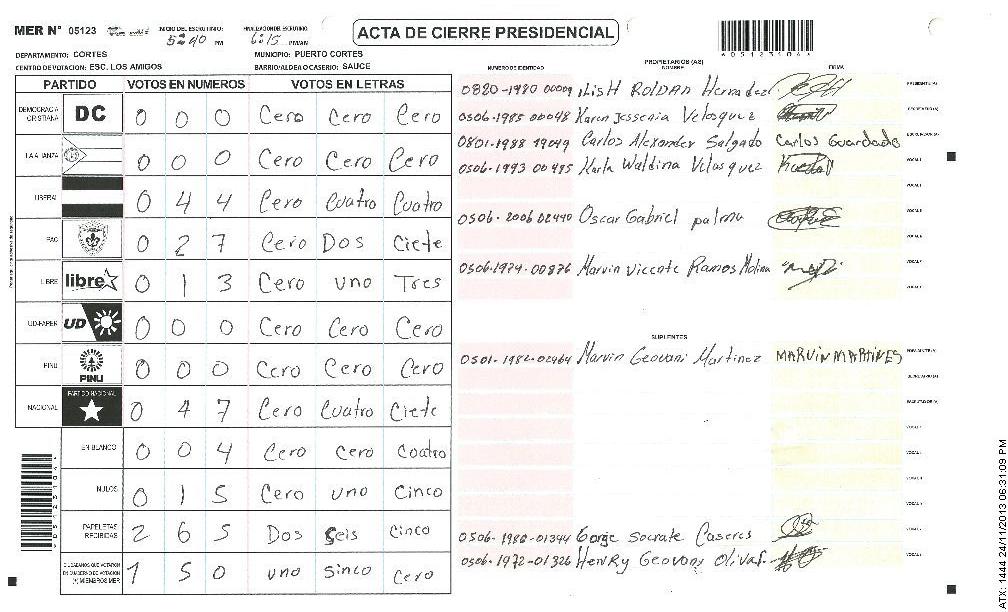 MER N° 05123 INICIO DEL ESCRUTINIO: 5:40 PM FINALIZACION DE ESCRUTINIO: 6:15 PM/AM
ACTA DE CIERRE PRESIDENCIAL
DEPARTAMENTO: CORTES MUNICIPIO: PUERTO CORTES
CENTRO DE VOTACION: ESC. LOS AMIGOS BARRIO/ALDEA O CASERIO: SAUCE
PARTIDO VOTOS EN NUMEROS VOTOS EN LETRAS
DEMOCRACIA CRISTIANA DC 0 0 0 Cero Cero Cero
LA ALIANZA 0 0 0 Cero Cero Cero
LIBERAL 0 4 4 Cero Cuatro Cuatro
PAC 0 2 7 Cero Dos Ciete
LIBRE libre 0 1 3 Cero uno Tres
UD-FAPER UD 0 0 0 Cero Cero Cero
PINU PINU 0 0 0 Cero Cero Cero
NACIONAL PARTIDO NACIONAL 0 4 7 Cero Cuatro Ciete
EN BLANCO 0 0 4 Cero cero Cuatro
NULOS 0 1 5 Cero uno Cinco
PAPELETAS RECIBIDAS 2 6 5 Dos Seis Cinco
CIUDADANOS QUE VOTARON EN CUADERNO DE VOTACION (+) MIEMBROS MER 1 5 0 uno sinco Cero
PROPIETARIOS (AS)
NUMERO DE IDENTIDAD NOMBRE FIRMA
0820-1980 00009 ROLDAN Hernadez PRESIDENTE (A)
0506-1985 00048 Karen Jessenia Velasquez SECRETARIO (A)
0801-1988 19049 Carlos Alexander Salgado Carlos Guardado ESCRUTADOR (A)
0506-1993 00495 Karla Waldina Velasquez VOCAL I
0506-2006 02440 Oscar Gabriel palma
0506-1974-00876 Marvin Vicente Ramos Molina
SUPLENTES
0501-1982-02464 Marvin Geovani Martinez MARVIN MARTINES PRESIDENTE (A)
SECRETARIO (A)
ESCRUTADOR (A)
0506-1980-01344 Gorge Socrate Caseres
0506-1972-01326 Henry Geovany Olivas
4051231064
ATX: 1444 24/11/2013 06:31:09 PM